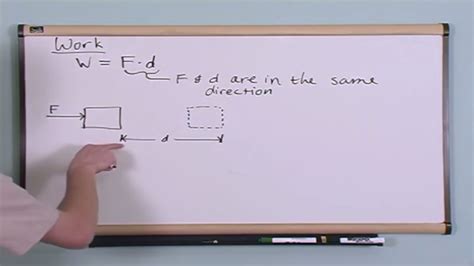 Work
W = F·d
F & d are in the same
direction
F
d